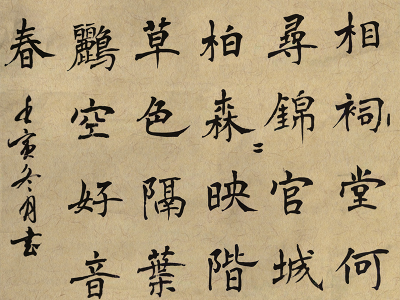 相祠堂何
尋錦官城
柏森〻映階
草色隔葉
鸝空好音
春
壬寅冬月書